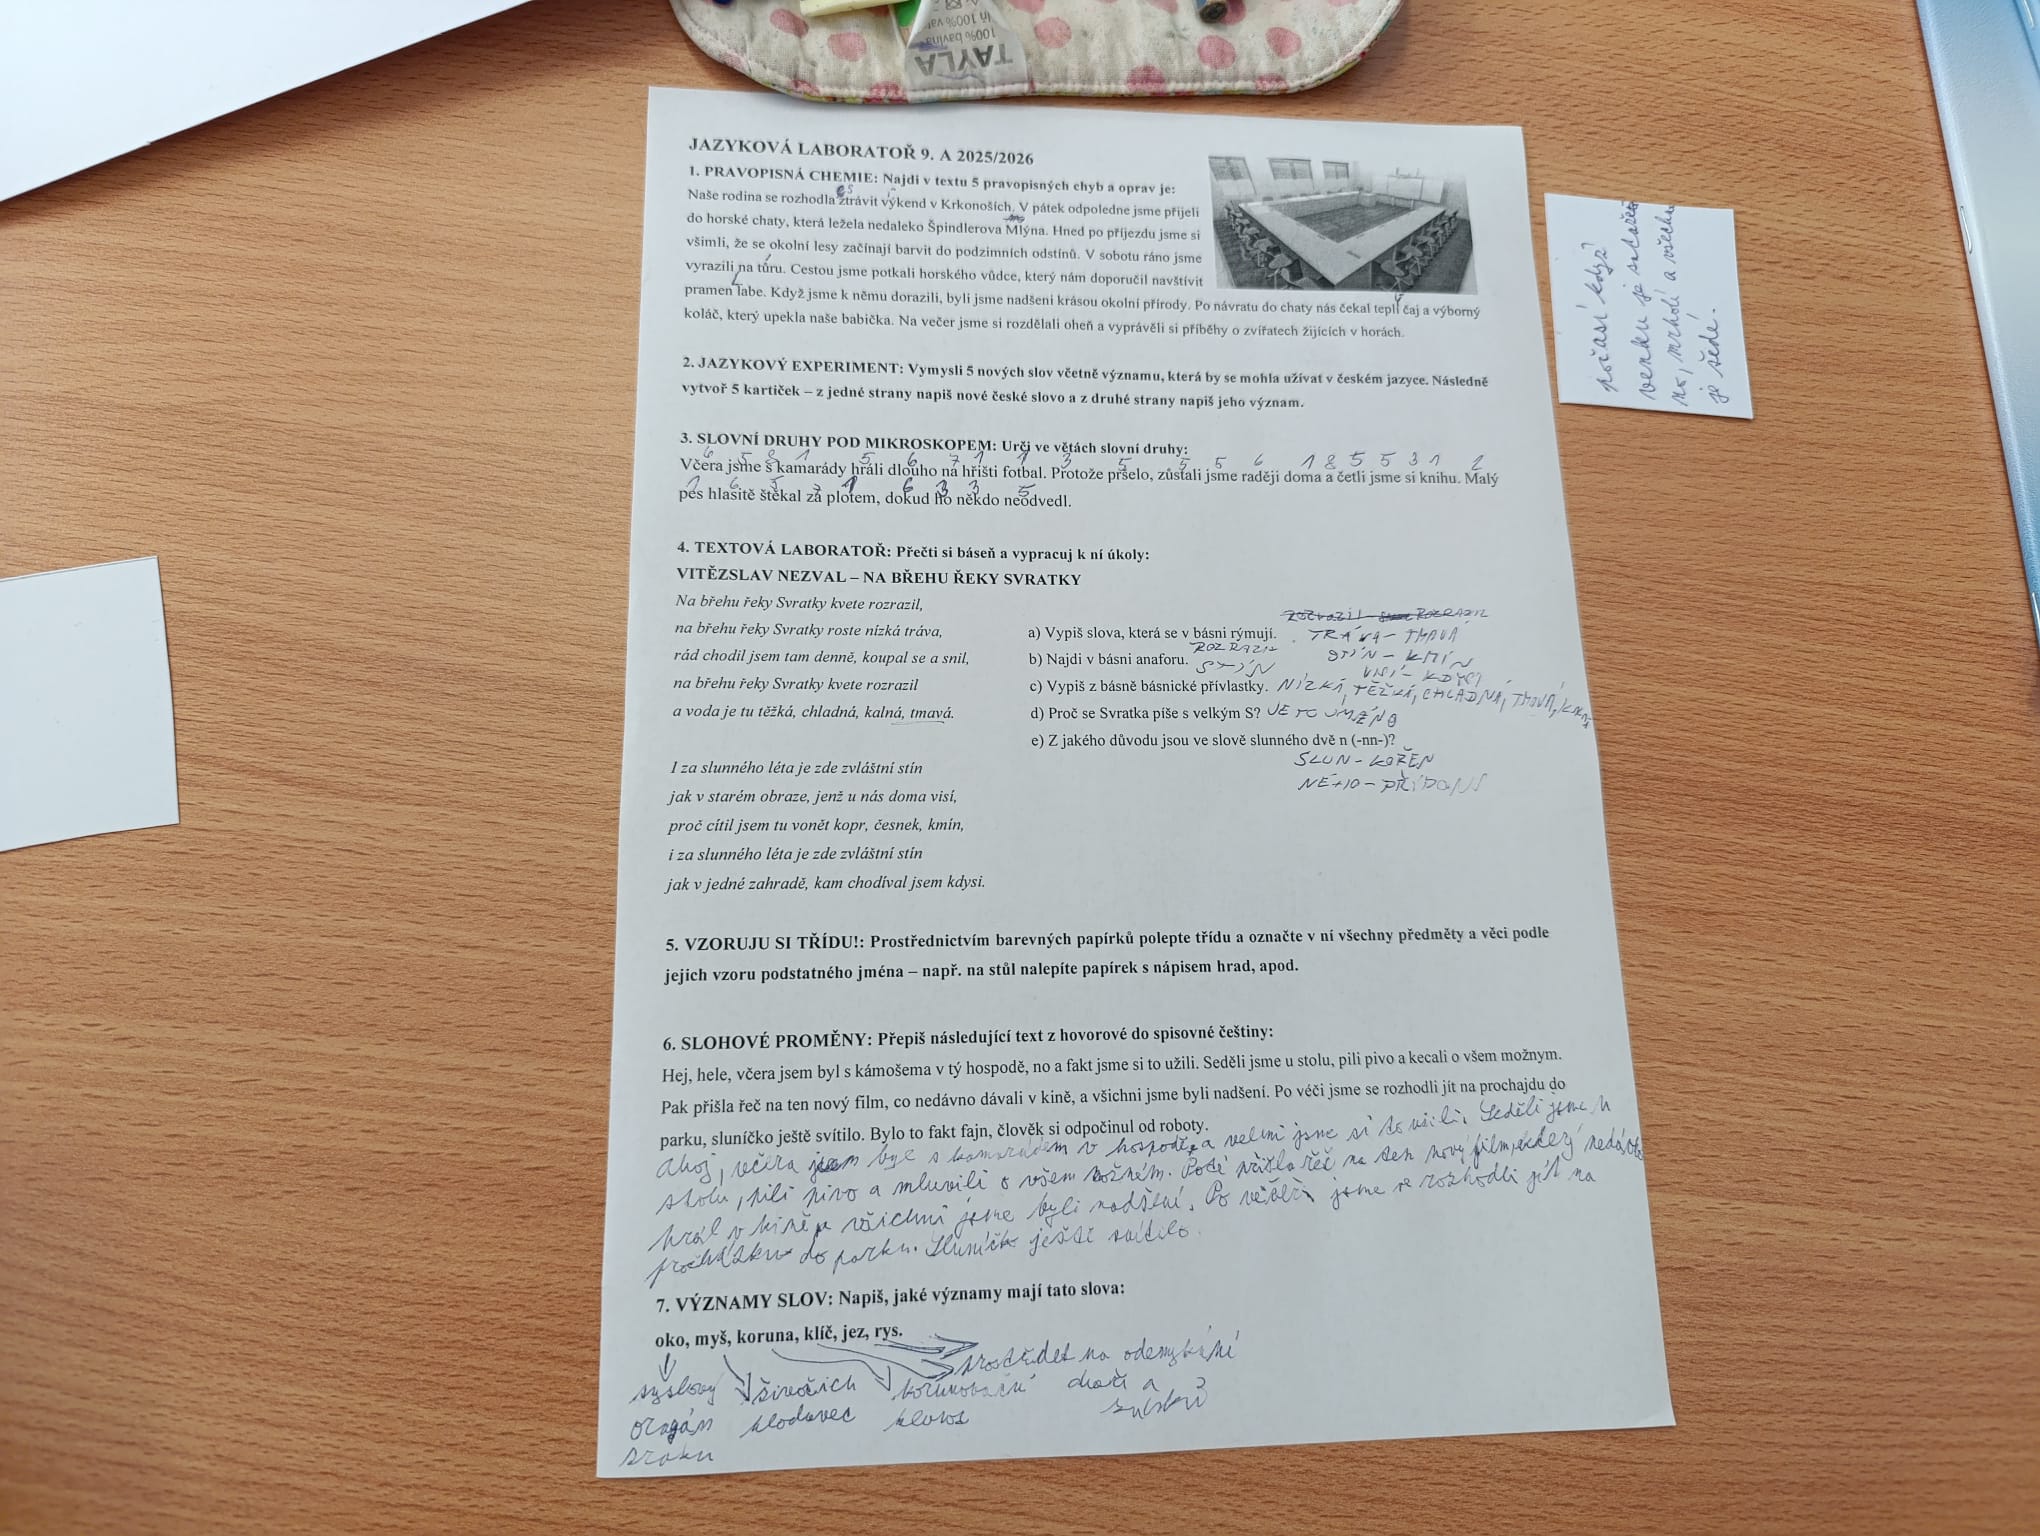 TAYLA
100% bavlna
JAZYKOVÁ LABORATOŘ 9. A 2025/2026
1. PRAVOPISNÁ CHEMIE: Najdi v textu 5 pravopisných chyb a oprav je:
s í
Naše rodina se rozhodla ztrávit výkend v Krkonoších. V pátek odpoledne jsme přijeli
do horské chaty, která ležela nedaleko Špindlerova Mlýna. Hned po příjezdu jsme si
všimli, že se okolní lesy začínají barvit do podzimních odstínů. V sobotu ráno jsme
vyrazili na tůru. Cestou jsme potkali horského vůdce, který nám doporučil navštívit
L ý
pramen labe. Když jsme k němu dorazili, byli jsme nadšeni krásou okolní přírody. Po návratu do chaty nás čekal teplí čaj a výborný
koláč, který upekla naše babička. Na večer jsme si rozdělali oheň a vyprávěli si příběhy o zvířatech žijících v horách.
2. JAZYKOVÝ EXPERIMENT: Vymysli 5 nových slov včetně významu, která by se mohla užívat v českém jazyce. Následně
vytvoř 5 kartiček – z jedné strany napiš nové české slovo a z druhé strany napiš jeho význam.
3. SLOVNÍ DRUHY POD MIKROSKOPEM: Urči ve větách slovní druhy:
6 5 8 1 5 6 7 1 1 3 5 5 5 6 1 8 5 5 3 1 2
Včera jsme s kamarády hráli dlouho na hřišti fotbal. Protože pršelo, zůstali jsme raději doma a četli jsme si knihu. Malý
1 6 5 7 1 6 3 3 5
pes hlasitě štěkal za plotem, dokud ho někdo neodvedl.
4. TEXTOVÁ LABORATOŘ: Přečti si báseň a vypracuj k ní úkoly:
VITĚZSLAV NEZVAL – NA BŘEHU ŘEKY SVRATKY
Na břehu řeky Svratky kvete rozrazil,
na břehu řeky Svratky roste nízká tráva,
rád chodil jsem tam denně, koupal se a snil,
na břehu řeky Svratky kvete rozrazil
a voda je tu těžká, chladná, kalná, tmavá.
I za slunného léta je zde zvláštní stín
jak v starém obraze, jenž u nás doma visí,
proč cítil jsem tu vonět kopr, česnek, kmín,
i za slunného léta je zde zvláštní stín
jak v jedné zahradě, kam chodíval jsem kdysi.
a) Vypiš slova, která se v básni rýmují. TRÁVA – TMAVÁ
STÍN – KMÍN
VISÍ – KDYSI
b) Najdi v básni anaforu. ROZRAZIL
STÍN
c) Vypiš z básně básnické přívlastky. NÍZKÁ, TĚŽKÁ, CHLADNÁ, TMAVÁ,
d) Proč se Svratka píše s velkým S? JE TO JMÉNO
e) Z jakého důvodu jsou ve slově slunného dvě n (-nn-)?
SLUN – KOŘEN
NÉHO – PŘÍPONS
5. VZORUJU SI TŘÍDU!: Prostřednictvím barevných papírků polepte třídu a označte v ní všechny předměty a věci podle
jejich vzoru podstatného jména – např. na stůl nalepíte papírek s nápisem hrad, apod.
6. SLOHOVÉ PROMĚNY: Přepiš následující text z hovorové do spisovné češtiny:
Hej, hele, včera jsem byl s kámošema v tý hospodě, no a fakt jsme si to užili. Seděli jsme u stolu, pili pivo a kecali o všem možnym.
Pak přišla řeč na ten nový film, co nedávno dávali v kině, a všichni jsme byli nadšení. Po véči jsme se rozhodli jít na prochajdu do
parku, sluníčko ještě svítilo. Bylo to fakt fajn, člověk si odpočinul od roboty.
Ahoj, včera jsem byl s kamarádem v hospodě, a velmi jsme si to užili. Seděli jsme u
stolu, pili pivo a mluvili o všem možném. Poté přišla řeč na ten nový film, který nedávno
hrál v kině a všichni jsme byli nadšení. Po večeři jsme se rozhodli jít na
procházku do parku. Sluníčko ještě svítilo.
7. VÝZNAMY SLOV: Napiš, jaké významy mají tato slova:
oko, myš, koruna, klíč, jez, rys.
prostředek na odemykání
živočich korunovační dveří a
orgán hlodavec klenot
zraku
počasí když
venku je
no, mrholí a všechno
je šedé.